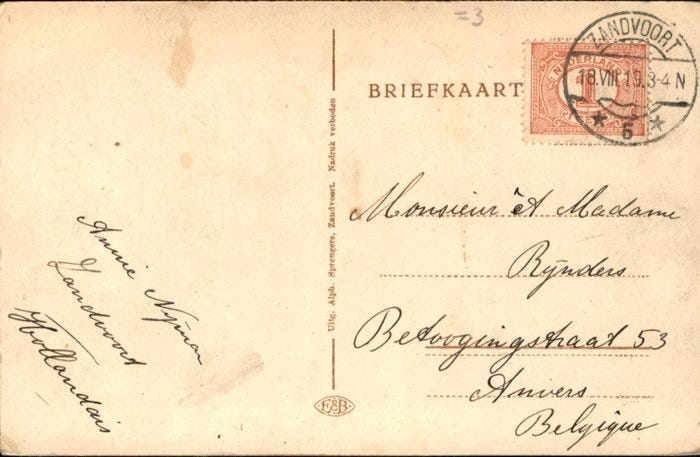 =3
BRIEFKAART
NEDERLAND
ZANDVOORT
18.VIII.19.3-4 N
* 5 *
Annie Nyman
Zandvoort
Hollandais
Uitg. Alph. Sprengers, Zandvoort. Nadruk verboden
E&B.
Monsieur et Madame
Rÿnders
Betoogingstraat 53
Anvers
Belgique